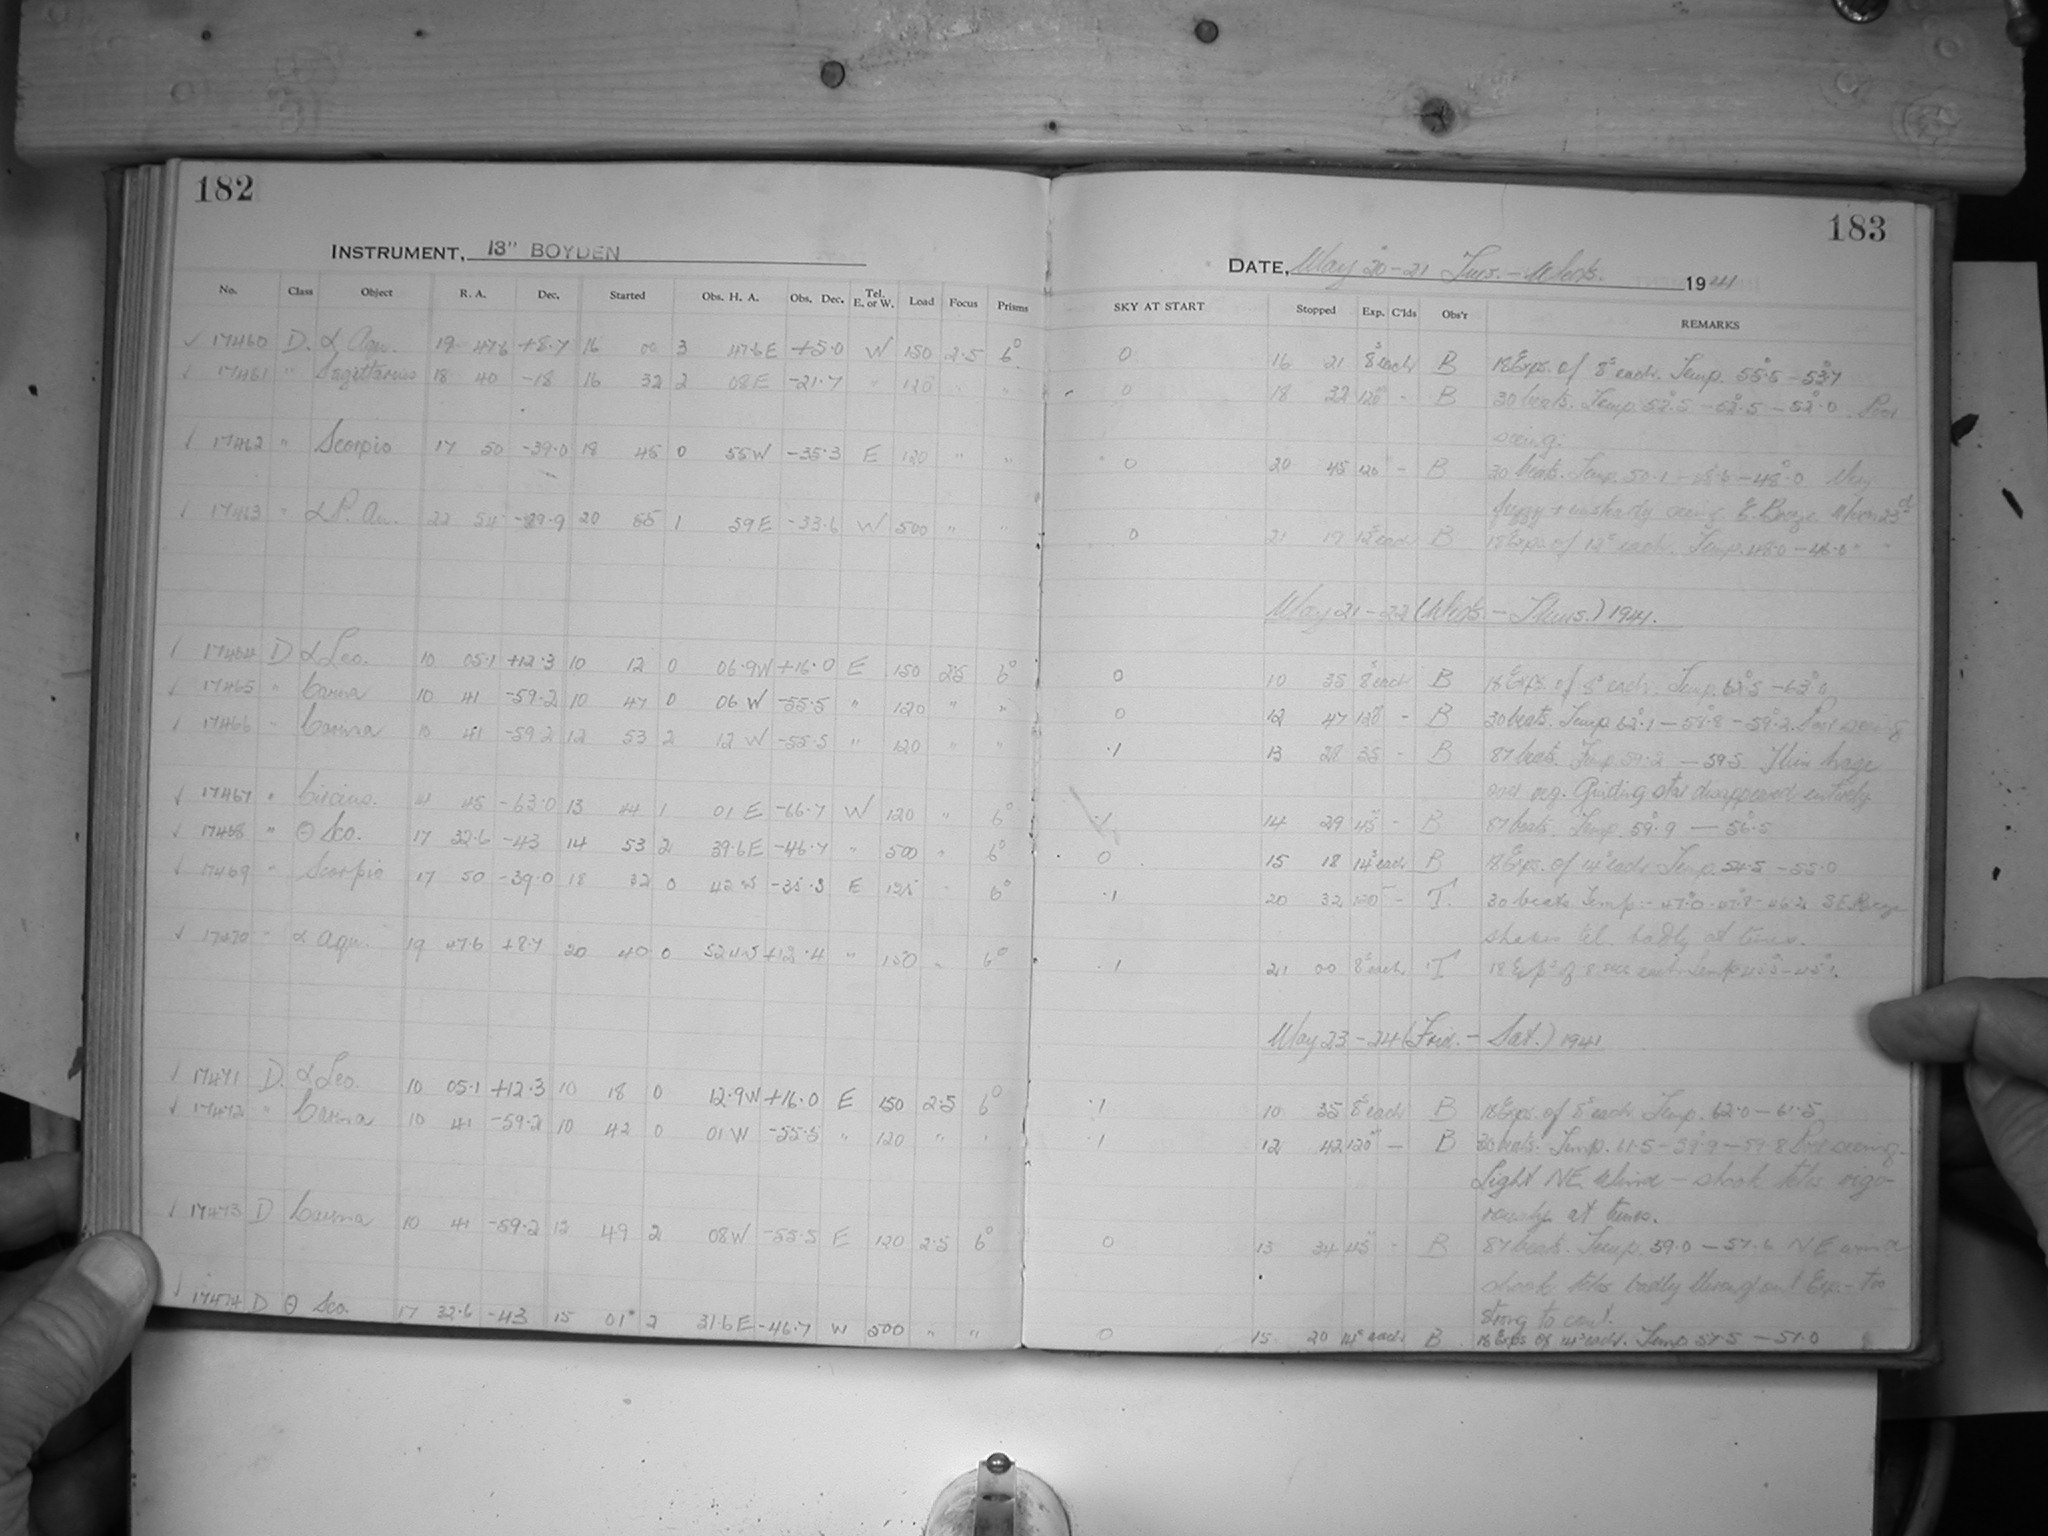 182
INSTRUMENT, 13" BOYDEN
No. Class Object R. A. Dec. Started Obs. H. A. Obs. Dec. Tel. E. or W. Load Focus Prisms
✓ 17460 D. α Aqu. 19 47.6 +8.7 16 00 3 47.6E +5.0 W 150 2.5 6°
✓ 17461 " Sagittarius 18 40 -18 16 32 2 08E -21.7 " 120 " "
✓ 17462 " Scorpio 17 50 -39.0 18 45 0 55W -35.3 E 120 " "
✓ 17463 " α P. Au. 22 54 -29.9 20 55 1 59E -33.6 W 500 " "
✓ 17464 D α Leo. 10 05.1 +12.3 10 12 0 06.9W +16.0 E 150 2.5 6°
✓ 17465 " Carina 10 41 -59.2 10 47 0 06 W -55.5 " 120 " "
✓ 17466 " Carina 10 41 -59.2 12 53 2 12 W -55.5 " 120 " "
✓ 17467 " Circinus. 14 45 -63.0 13 44 1 01 E -66.7 W 120 " 6°
✓ 17468 " θ Sco. 17 32.6 -43 14 53 2 39.6E -46.7 " 500 " 6°
✓ 17469 " Scorpio 17 50 -39.0 18 32 0 42 W -35.3 E 125 " 6°
✓ 17470 " α Aqu. 19 47.6 +8.7 20 40 0 +12.4 " 150 " 6°
✓ 17471 D. α Leo. 10 05.1 +12.3 10 18 0 12.9W +16.0 E 150 2.5 6°
✓ 17472 " Carina 10 41 -59.2 10 42 0 01 W -55.5 " 120 " "
✓ 17473 D Carina 10 41 -59.2 12 49 2 08W -55.5 E 120 2.5 6°
✓ 17474 D θ Sco. 17 32.6 -43 15 01 2 31.6E -46.7 W 500 " "
183
DATE, May 20-21 Tues.-Weds. 1941
SKY AT START Stopped Exp. C'lds Obs'r REMARKS
0 16 21 8s each B 18 Exps. of 8s each. Temp. 55.5 - 53.7
0 18 32 120 - B 30 beats. Temp. 52.5 - 52.5 - 52.0 Poor
seeing.
0 20 45 120 - B 30 beats. Temp. 50.1 - 48.6 - 48.0 Very
fuzzy + unsteady seeing E. Breeze
0 21 17 12s each B 18 Exps. of 12s each. Temp. 48.0 - 46.0
May 21-22 (Weds. - Thurs.) 1941.
0 10 35 8s each B 18 Exps. of 8s each. Temp. 62.5 - 63.0
0 12 47 120 - B 30 beats. Temp. 62.1 - 58.8 - 59.2. Poor seeing
.1 13 28 35 - B 87 beats. Temp. 59.2 - 59.5 Thin haze
over reg. Guiding star disappeared entirely
.1 14 29 45 - B 87 beats. Temp. 59.9 - 56.5
0 15 18 14s each B 18 Exps. of 14s each Temp. 54.5 - 55.0
.1 20 32 120 - T. 30 beats Temp - 47.0 - 47.8 - 46.2 S.E. Breeze
shakes tel. badly at times.
.1 21 00 8s each T 18 Exps of 8 sec each Temp
May 23-24 (Frid. - Sat.) 1941
.1 10 35 8s each B 18 Exps. of 8s each Temp. 62.0 - 61.5
.1 12 42 120 - B 30 beats. Temp. 61.5 - 59.9 - 59.8 Poor seeing.
Light NE. Wind - shook teles. vigo-
rously at times.
0 13 34 45 - B 87 beats. Temp. 59.0 - 57.6 NE wind
shook teles badly throughout Exp. - too
strong to cont.
0 15 20 14s each B 18 Exps of 14s each. Temp 57.5 - 57.0